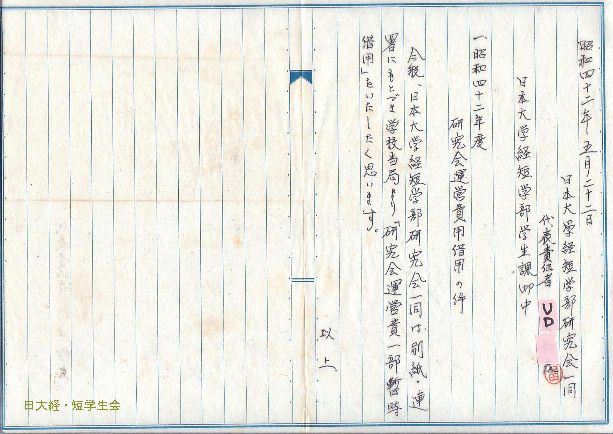 昭和四十二年五月二十二日
日本大学経短学部研究会一同
代表責任者 UD
日本大学経短学部学生課御中
一昭和四十二年度
研究会運営費用借用の件
今般、日本大学経短学部研究会一同は別紙・連
署にもとづき学校当局より「研究会運営費一部暫時
借用」をいたしたく思います。
以上
日大経・短学生会